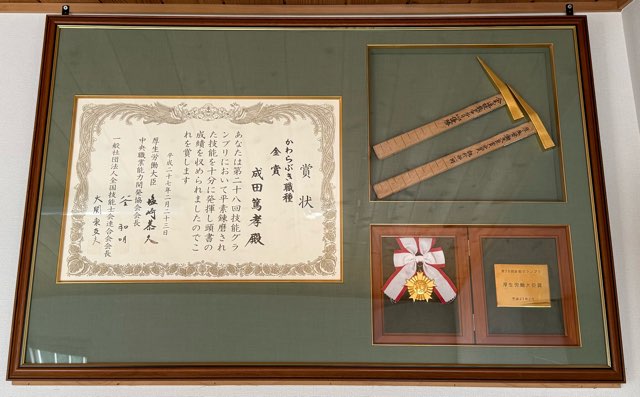 賞状
かわらぶき職種
金賞
成田篤孝殿
あなたは第二十八回技能グラ
ンプリにおいて平素錬磨され
た技能を十分に発揮し頭書の
成績を収められましたのでこ
れを賞します
平成二十七年二月二十三日
厚生労働大臣 塩崎恭久
中央職業能力開発協会会長
一般社団法人全国技能士会連合会会長
第28回技能グランプリ
厚生労働大臣賞